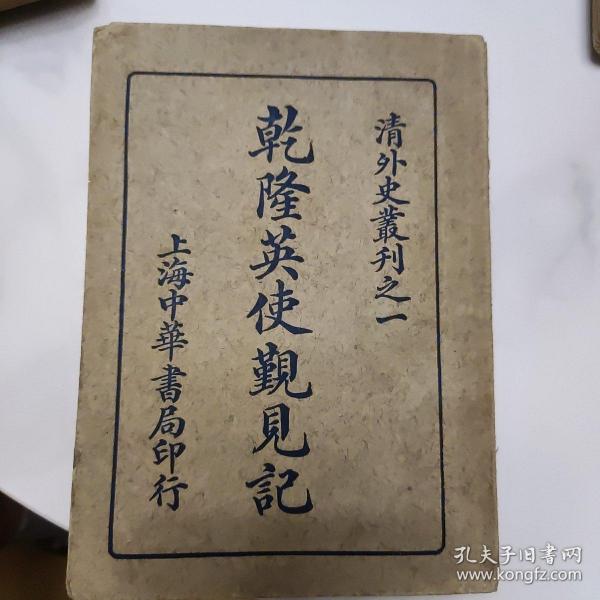 清外史叢刊之一
乾隆英使覲見記
上海中華書局印行
孔夫子旧书网
www.kongfz.com